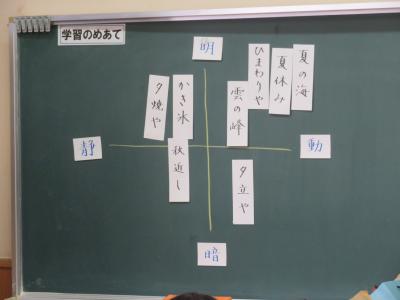 学習のめあて
明
夏の海
夏休み
ひまわりや
雲の峰
かき氷
夕焼や
静
動
秋近し
夕立や
暗